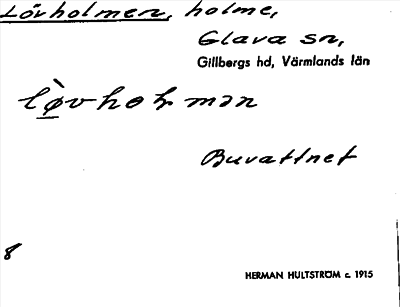 Lövholmen, holme,
Glava sn,
Gillbergs hd, Värmlands län
lø̀vhoɫmən
Buvattnet
8
HERMAN HULTSTRÖM c. 1915